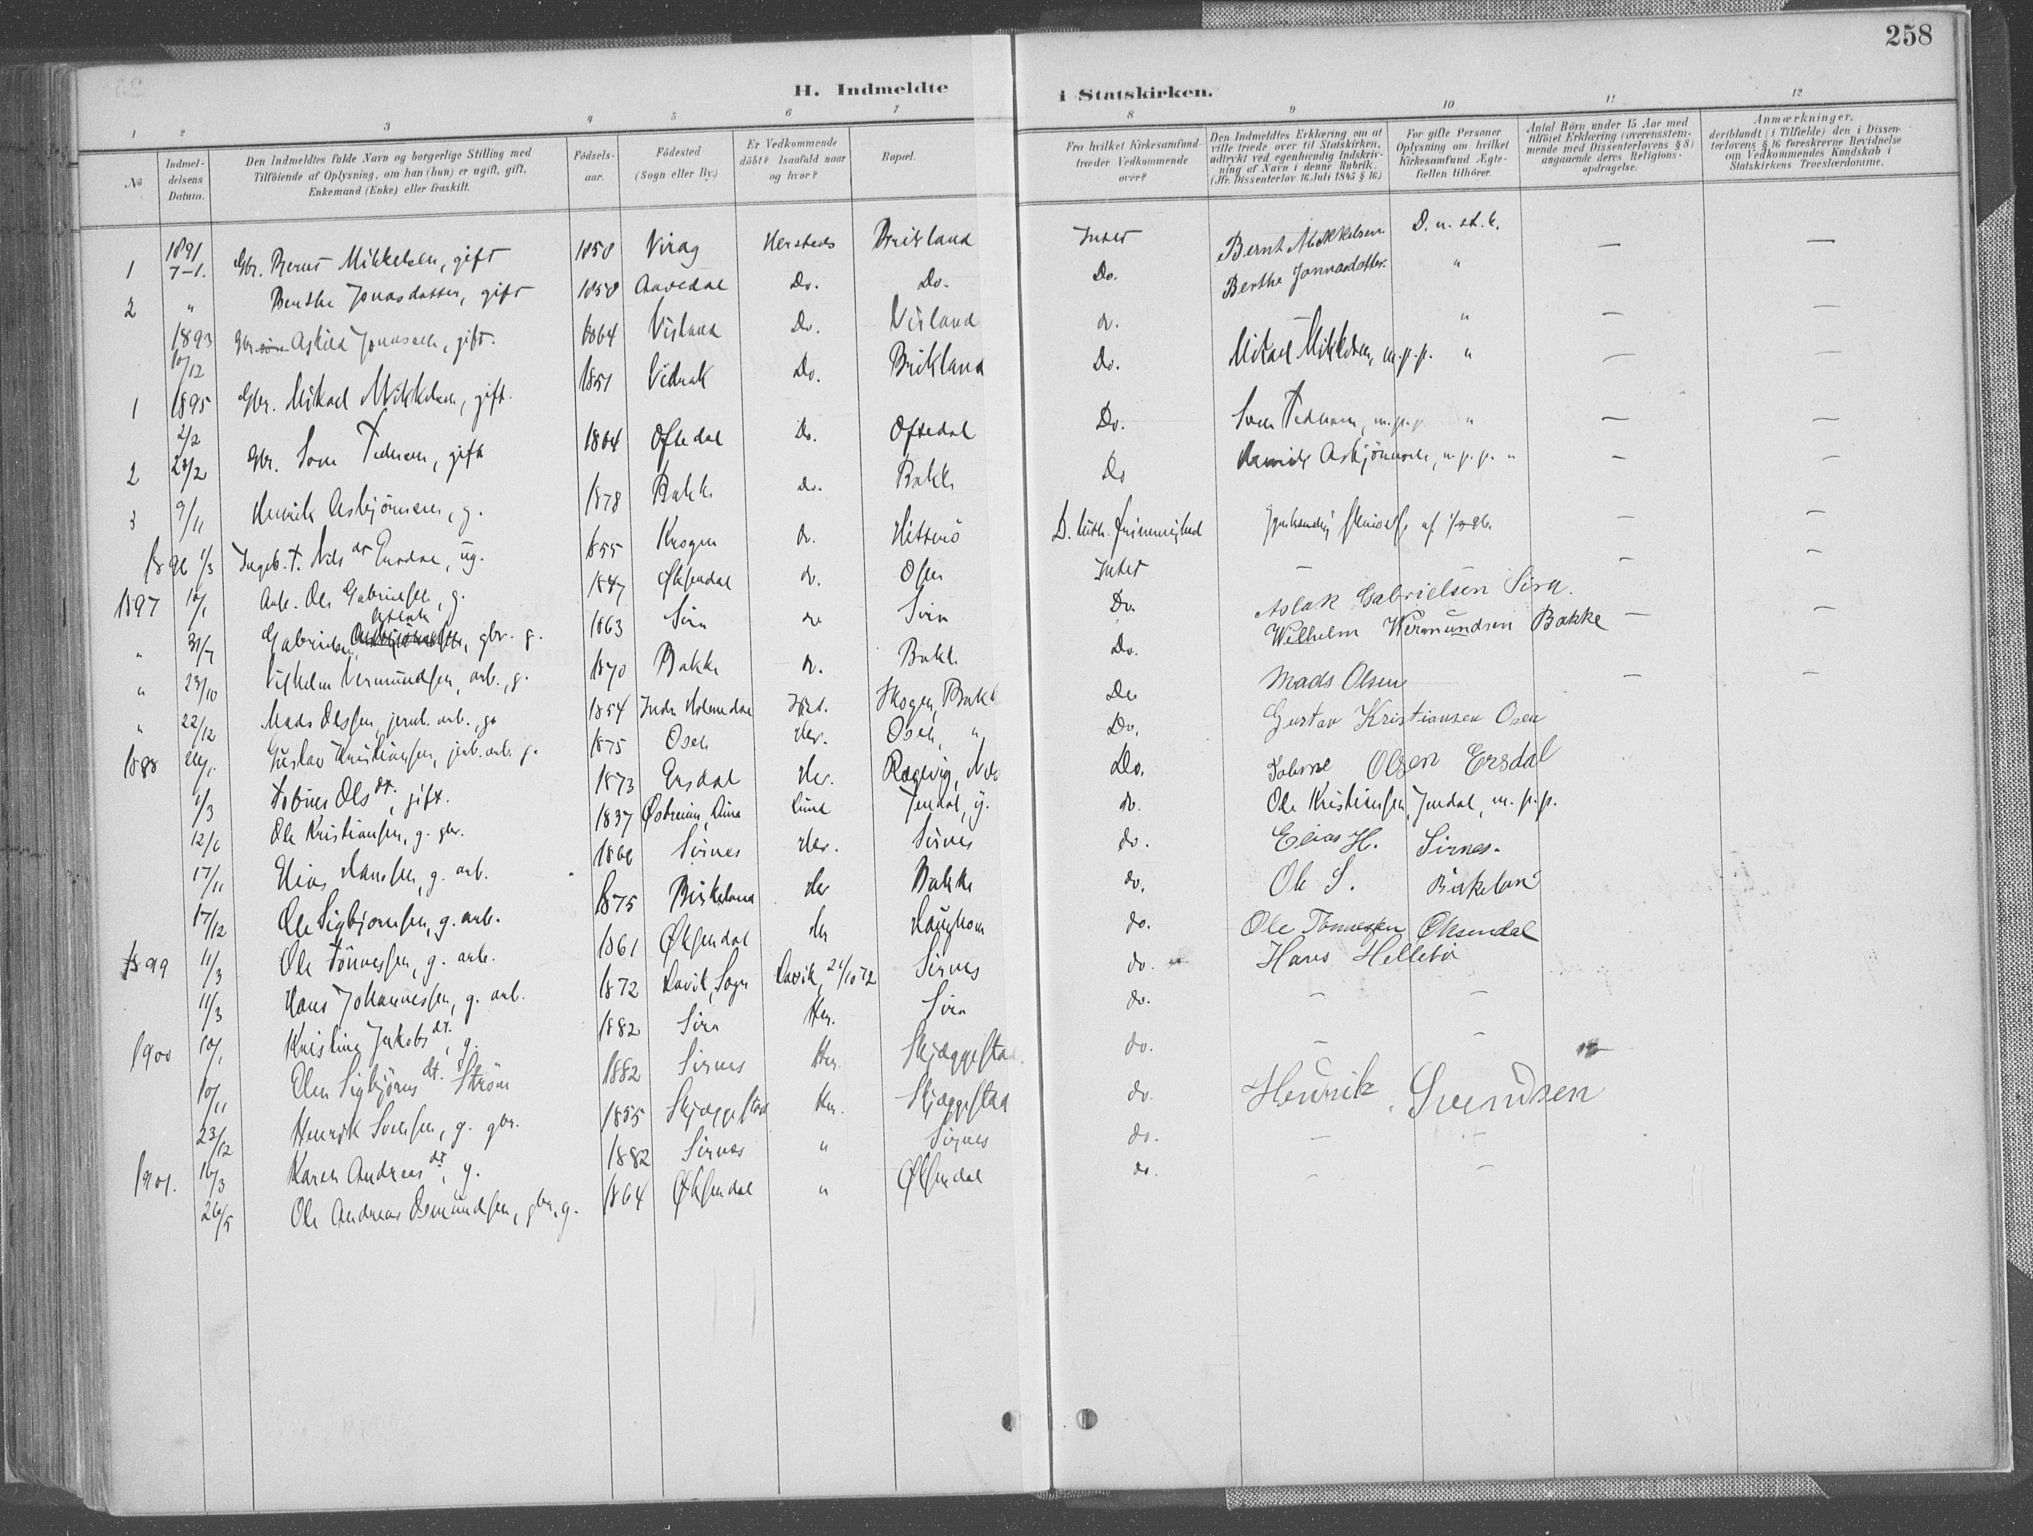 258
H. Indmeldte i Statskirken.
1 2 3 4 5 6 7 8 9 10 11 12
No
Indmel-delsens Datum.
Den Indmeldtes fulde Navn og borgerlige Stilling med Tilföiende af Oplysning, om han (hun) er ugift, gift, Enkemand (Enke) eller fraskilt.
Födsels-aar.
Födested (Sogn eller By.)
Er Vedkommende döbt? Isaafald naar og hvor?
Bopæl.
Fra hvilket Kirkesamfund træder Vedkommende over?
Den Indmeldtes Erklæring om at ville træde over til Statskirken, udtrykt ved egenhændig Indskriv-ning af Navn i denne Rubrik. (Jfr. Dissenterlov 16. Juli 1845 § 16.)
For gifte Personer Oplysning om hvilket Kirkesamfund Ægte-fællen tilhörer.
Antal Börn under 15 Aar med tilföiet Erklæring (overensstem-mende med Dissenterlovens § 8) angaaende deres Religions-opdragelse.
Anmærkninger, deriblandt (i Tilfælde) den i Dissen-terlovens § 16 foreskrevne Bevidnelse om Vedkommendes Kundskab i Statskirkens Troeslærdomme.
1 1891 7-1. Gbr. Bernt Mikkelsen, gift 1850 Virag Hersteds Birkland Intet Bernt Mikkelsen D. n. st. k. — —
2 " Berthe Jonasdatter, gift 1850 Aavedal Do. Do. Do. Berthe Jonnasdatter "
1893 10/12 Gbr. Askild Jonassen, gift. 1864 Visland Do. Visland do. " — —
1 1895 2/2 Gbr. Mikael Mikkelsen, gift. 1851 Vidrak Do. Birkland Do. Mikael Mikkelsen, m.p.p. " — —
2 23/2 Gbr. Sven Pedersen, gift 1864 Oftedal Do. Oftedal Do. Sven Pedersen, m.p.p. " — —
3 9/11 Henrik Asbjörnsen, g. 1878 Bakke do. Bakke Do Henrik Asbjörnsen, m.p.p. " — —
1896 1/3 Ingeb. T. Nils dr Ersdal, ug. 1855 Skogen do. Hitterö D. luth. frimenighed — —
1897 10/1 Arb. Ole Gabrielsen, g. 1847 Øksendal do. Osen Intet — — —
" 31/7 Gabrielsen, Aslak gbr. g. 1863 Sira do Sira Do. Aslak Gabrielsen Sira.
" 23/10 Vilhelm Vermundsen, arb., g. 1870 Bakke do. Bakke Do. Wilhelm Wermundsen Bakke — —
" 22/12 Mads Olsen, jernb. arb., g. 1854 Indr. Holmedal Ind. Skogen, Bakke Do Mads Olsen — —
1898 26/1. Gustav Kristiansen, jernb. arb. g. 1875 Osen Her. Osen, " Do. Gustav Kristiansen Osen
1/3 Tobine Ols dt., gift. 1873 Ersdal Her. Rægevig, Do. Tobine Olsen Ersdal
12/6 Ole Kristiansen, g. gbr. 1837 Østreim, Lund Lund Jendal, g. do. Ole Kristiansen, Jendal, m.p.p.
17/11 Elias Hansen, g. arb. 1868 Sirnes Her. Sirnes do. Elias H. Sirnes.
17/12 Ole Sigbjörnsen, g. arb. 1875 Birkeland Her Bakke do. Ole S. Birkeland
1899 11/3 Ole Tönnessen, g. arb. 1861 Øksendal Her Haughom do. Ole Tønnesen Øksendal
11/3 Hans Johannessen, g. arb. 1872 Lavik, Sogn Lavik, 21/10 72 Sirnes do. Hans Hellebø
1900 10/1 Kristine Jakobs dt., g. 1882 Sira Her. Sira do. — —
10/11 Elen Sigbjörns dt. Ström 1882 Sirnes Her. Skjæggestad do. — —
23/12 Henrik Svensen, g. gbr. 1855 Skjæggestad Her. Skjæggestad do. Henrik Svendsen
1901. 16/3 Karen Andreas dt., g. 1882 Sirnes " Sirnes do. — —
26/5 Ole Andreas Osmundsen, gbr. g. 1864 Øksendal " Øksendal do. — —